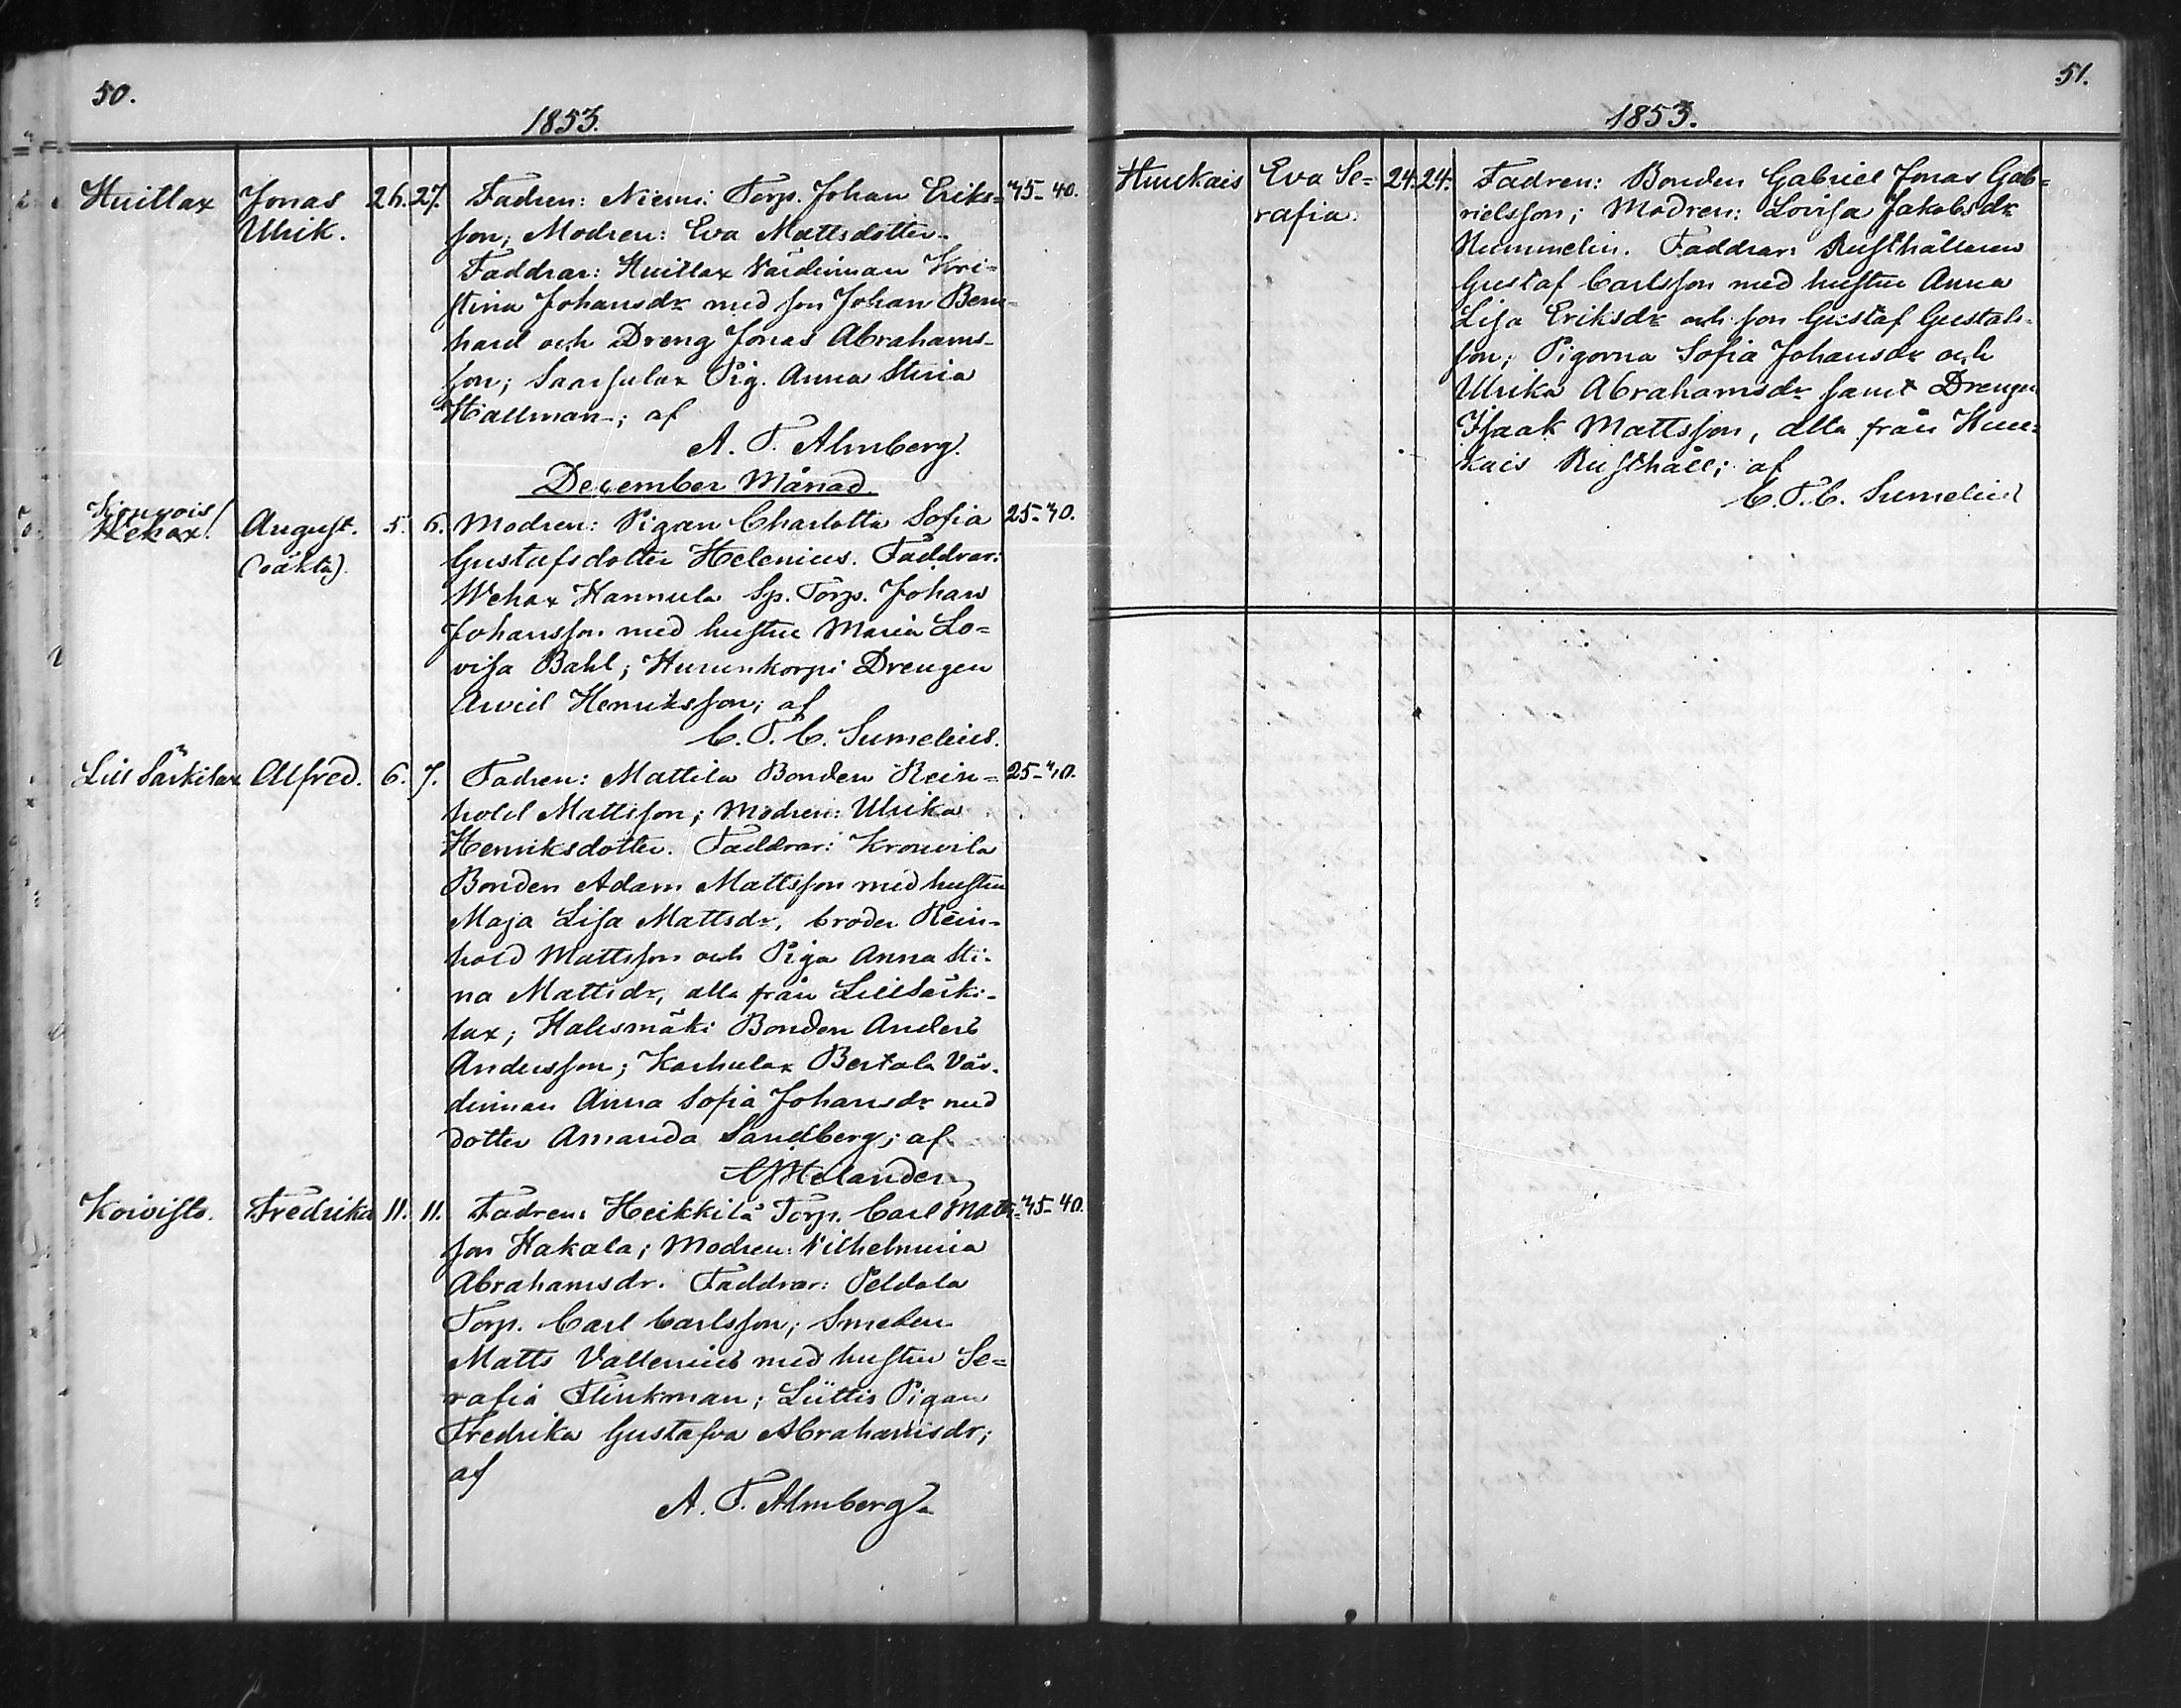 50.
1853.
Huitlax Jonas 26. 27. Fadren: Niemi Torp. Johan Eriks= 45-40.
Ulrik. son; Modren: Eva Mattsdotter.
Faddrar: Huitlax Värdinnan Kri=
stina Johansdr med son Johan Bern=
hard och Dreng Jonas Abrahams-
son; Saarsulax Pig. Anna Stina
Hallman; af
A. F. Almberg.
December Månad.
Wehax. August. 5. 6. Modren: Pigan Charlotta Sofia 25-40.
(oäkta). Gustafsdotter Helenius. Faddrar:
Wehax Hannula Sp. Torp. Johan
Johansson med hustru Maria Lo=
visa Bahl; Hurunkorpi Drengen
Arvid Henriksson; af
C. F. C. Sumelius.
Lill Särkilax Alfred. 6. 7. Fadren: Mattila Bonden Rein= 25-40.
hold Mattsson; Modren: Ulrika
Henriksdotter. Faddrar: Krouvila
Bonden Adam Mattsson med hustru
Maja Lisa Mattsdr, broder Rein-
hold Mattsson och Piga Anna Sti-
na Mattsdr, alla från Lill Särki-
lax; Halismäki Bonden Anders
Andersson; Karhulax Bertala Vär-
dinnan Anna Sofia Johansdr med
dotter Amanda Sandberg; af
Helander
Koivisto. Fredrika 11. 11. Fadren: Heikkilä Torp. Carl Matts= 45-40.
son Hakala; Modren: Vilhelmina
Abrahamsdr. Faddrar: Peldola
Torp. Carl Carlsson; Smeden
Matts Vallenius med hustru Se=
rafia Flinkman; Liittis Pigan
Fredrika Gustafva Abrahamsdr;
af
A. F. Almberg.
51.
1853.
Hunkais Eva Se= 24. 24. Fadren: Bonden Gabriel Jonas Gab=
rafia. rielsson; Modren: Lovisa Jakobsdr
Nummelin. Faddrar: Rusthållaren
Gustaf Carlsson med hustru Anna
Lisa Eriksdr och son Gustaf Gustafs-
son; Pigorna Sofia Johansdr och
Ulrika Abrahamsdr samt Drengen
Isaak Mattsson, alla från Hun=
kais Rusthåll; af
C. F. C. Sumelius